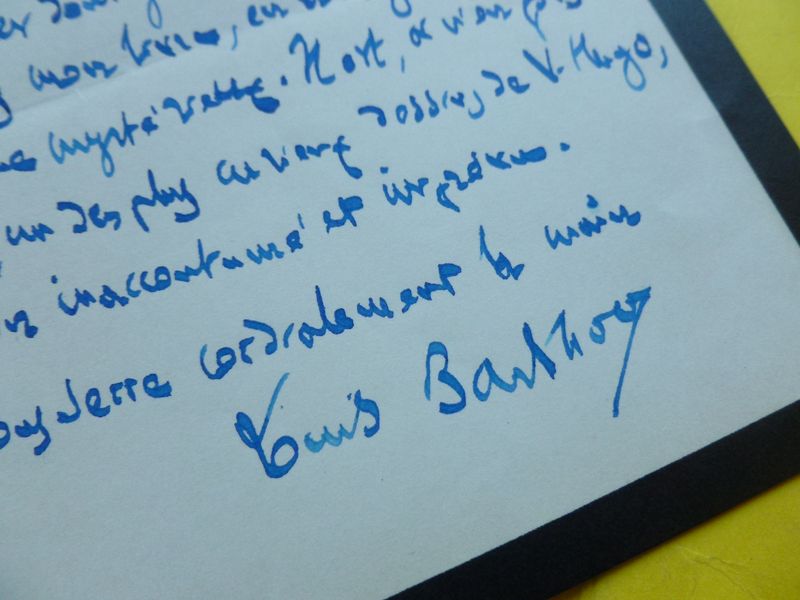 mon livre, en
mystérieuse. Hort, a bien
un des plus curieux dossiers de V. Hugo,
inaccoutumé et imprévu.
serre cordialement la main
Louis Barthou